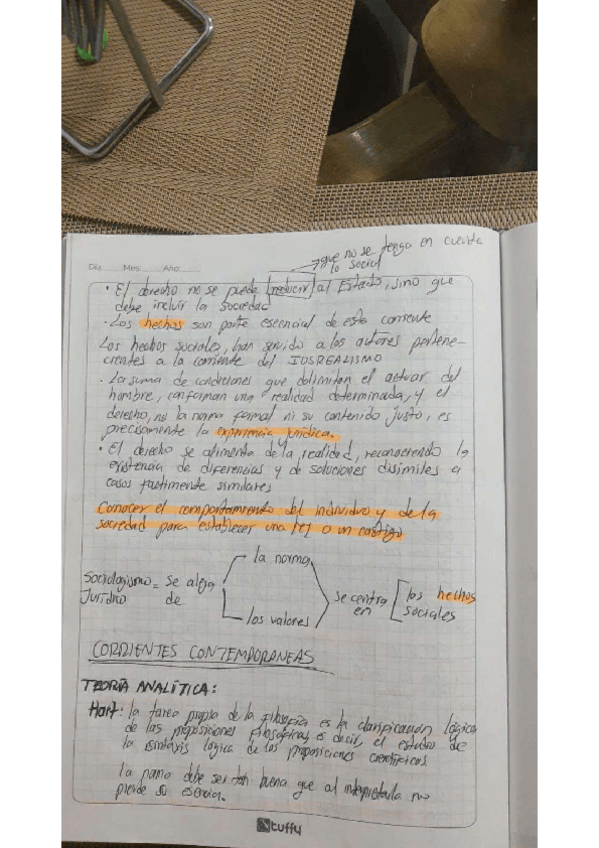 que no se tenga en cuenta
lo social
Día: Mes: Año:
• El derecho no se puede reducir al Estado, sino que
debe incluir la sociedad
• Los hechos son parte esencial de esta corriente
Los hechos sociales, han servido a los autores pertene-
cientes a la corriente del IUSREALISMO
• La suma de condiciones que delimitan el actuar del
hombre, conforman una realidad determinada, y el
derecho, no la norma formal ni su contenido justo, es
precisamente la experiencia jurídica.
• El derecho se alimenta de la realidad, reconociendo la
existencia de diferencias y de soluciones disimiles a
casos facticamente similares
Conocer el comportamiento del individuo y de la
sociedad para establecer una ley o un castigo
la norma
Sociologismo = se aleja se centra los hechos
Jurídico de en sociales
los valores
CORRIENTES CONTEMPORANEAS
TEORÍA ANALÍTICA:
Hart: la tarea propia de la filosofía es la clarificación lógica
de las proposiciones filosóficas, es decir, el estudio de
la sintaxis lógica de las proposiciones científicas
la norma debe ser tan buena que al interpretarla no
pierde su esencia.
tuffy